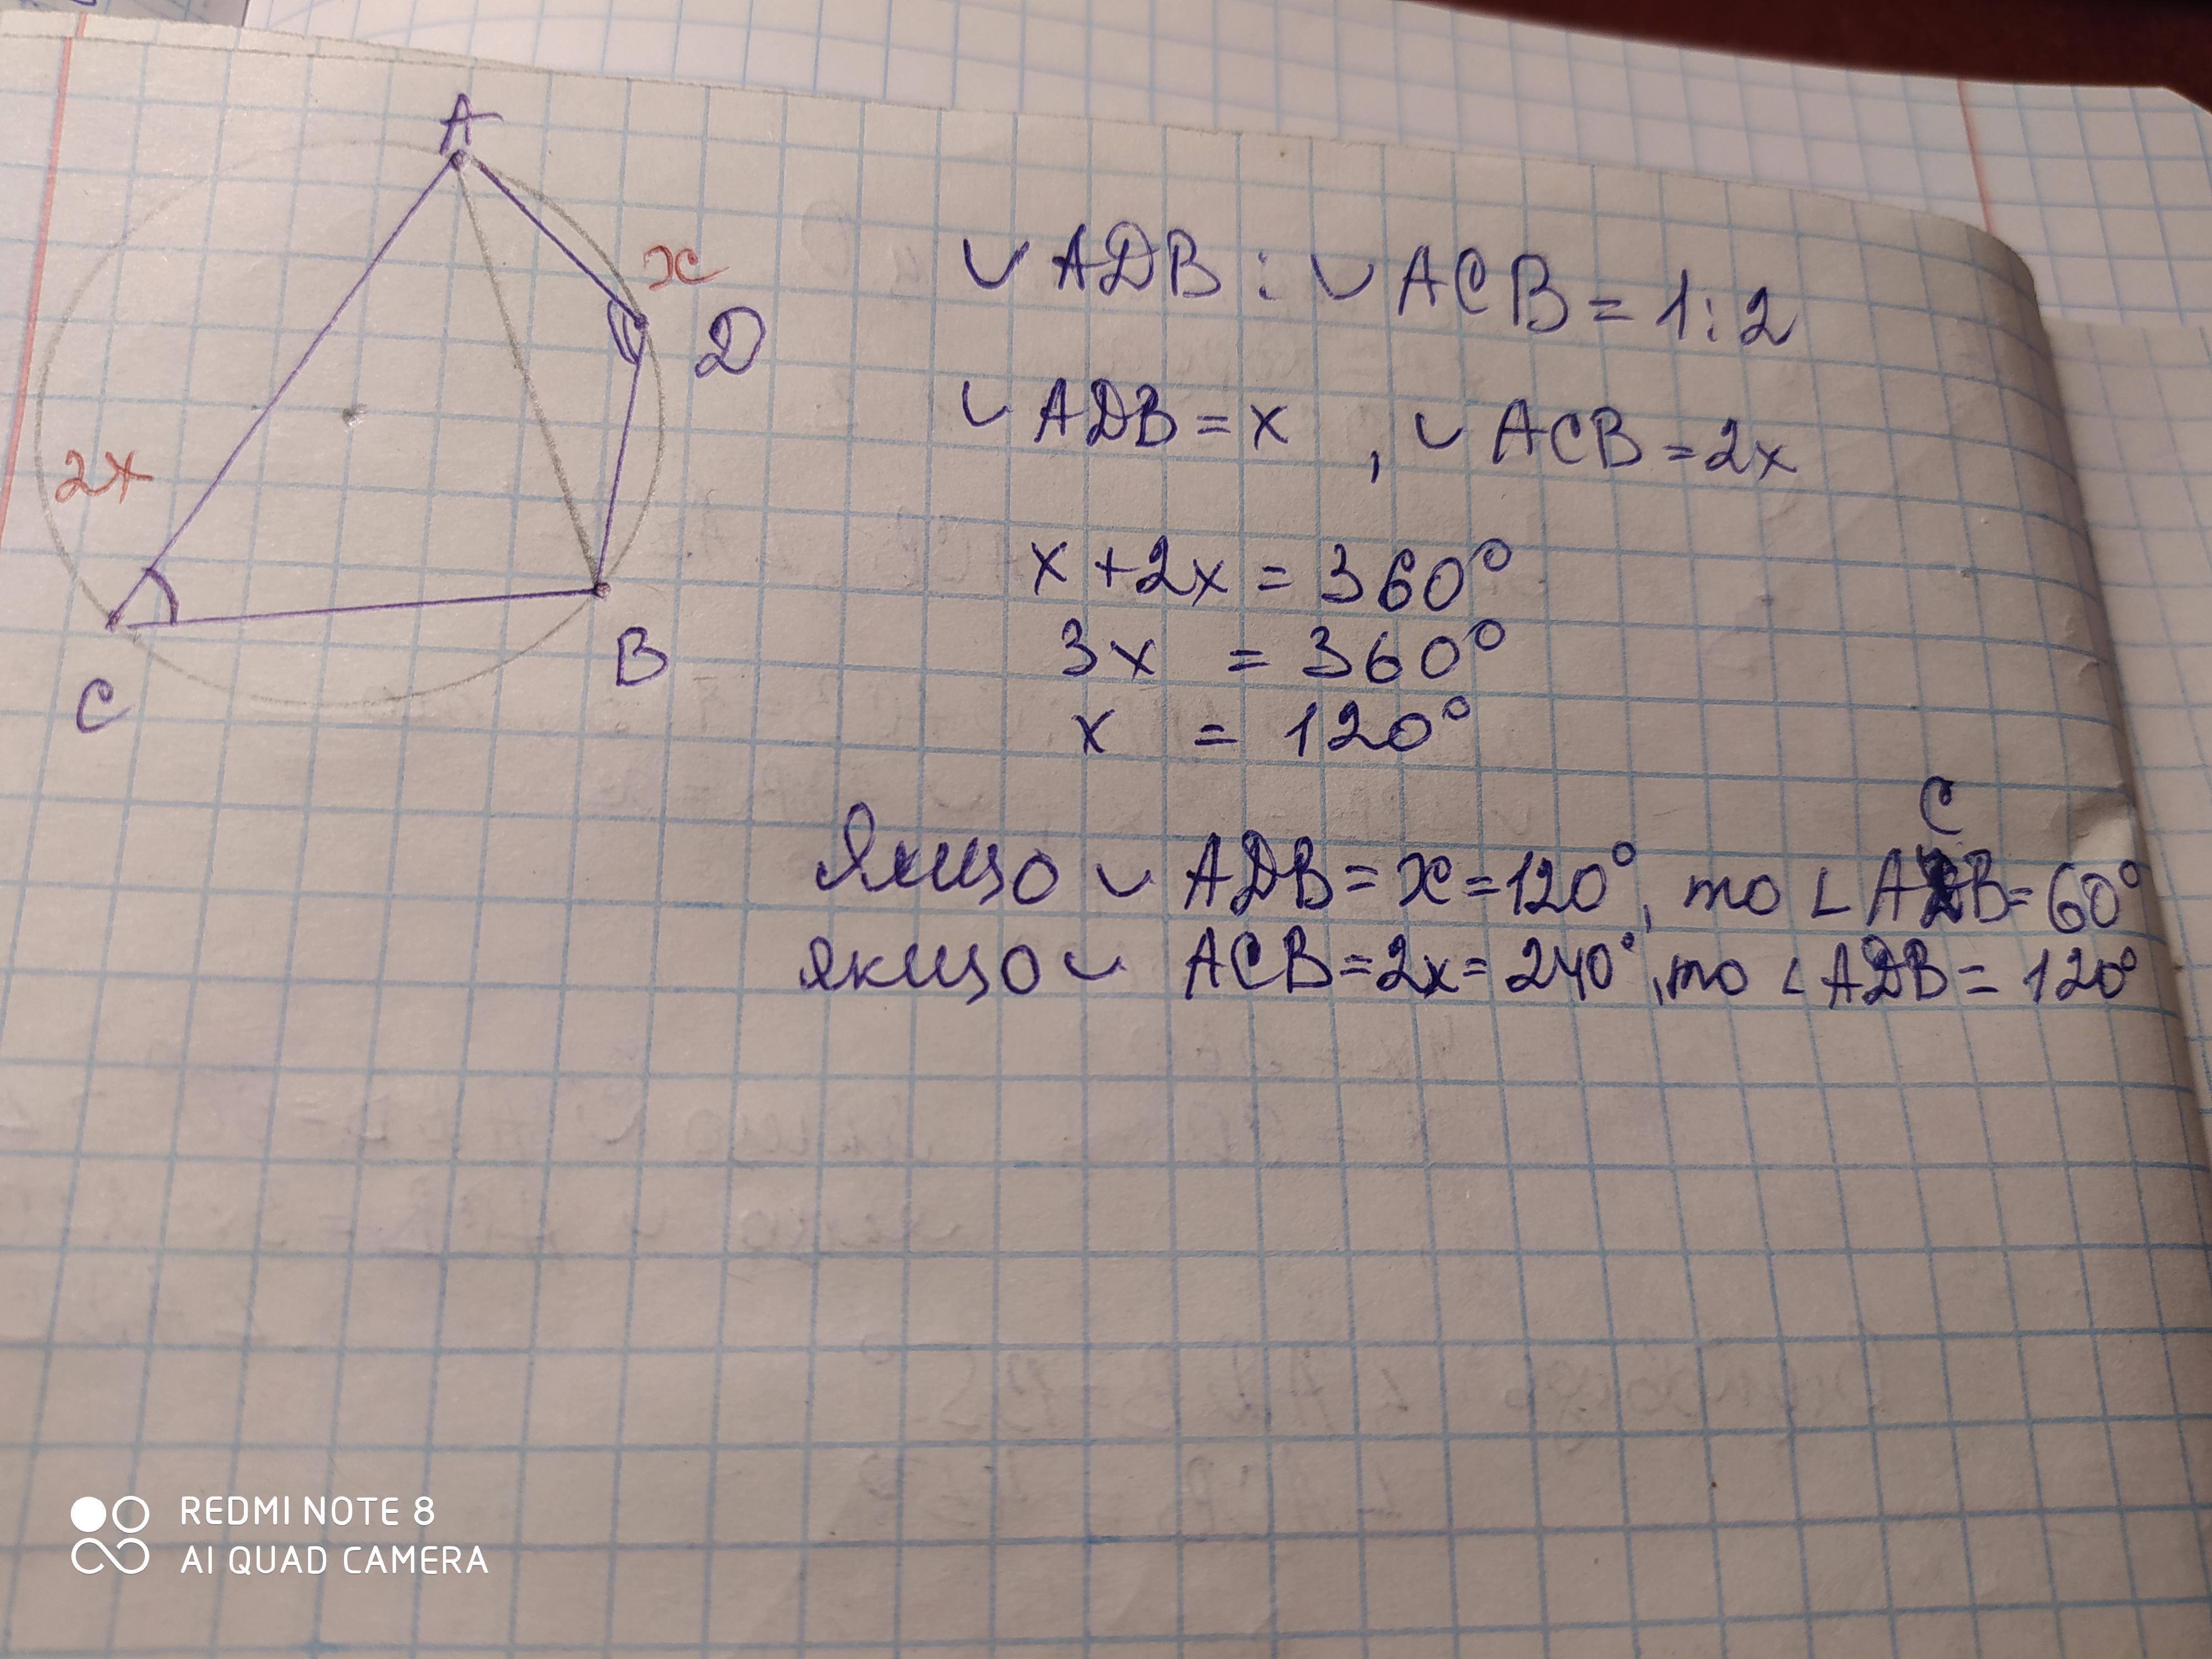 A
x
D
2x
C
B
◡ ADB : ◡ ACB = 1 : 2
◡ ADB = x , ◡ ACB = 2x
x + 2x = 360°
3x = 360°
x = 120°
Якщо ◡ ADB = x = 120°, то ∠ ACB = 60°
якщо ◡ ACB = 2x = 240°, то ∠ ADB = 120°
REDMI NOTE 8
AI QUAD CAMERA